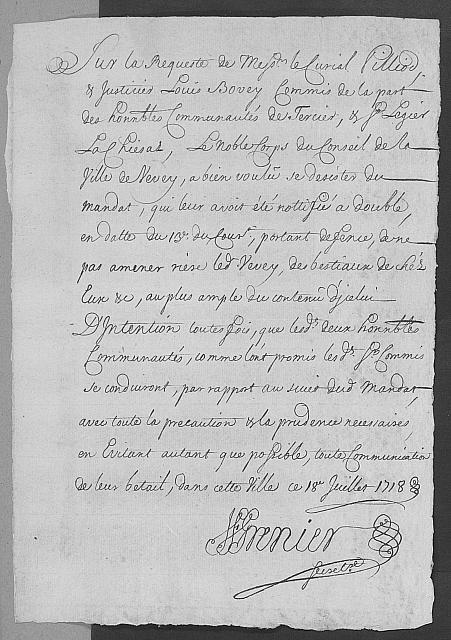 Sur la Requeste de Messrs le Curial Pilliod,
& Justicier Louis Bovey Commis de la part
des honnbles Communautés de Tercier, & St Legier
La Chiesaz, Le Noble Corps du Conseil de la
Ville de Vevey, a bien voulu se desister du
mandat, qui leur avoit été nottifié a double,
en datte du 15e du Court, portant defence, de ne
pas amener riere led. Vevey, de bestiaux de chéz
Eux &c, au plus ample du contenu d'jcelui
D'Intention toutesfois, que lesds deux honnbles
Communautés, comme l'ont promis lesds Srs Commis
se conduiront, par rapport au sujet dud Mandat,
avec toute la precaution & la prudence necessaires,
en Evitant autant que possible, toute Communication
de leur betail, dans cette Ville ce 18e Juillet 1718
Grenier
secretre